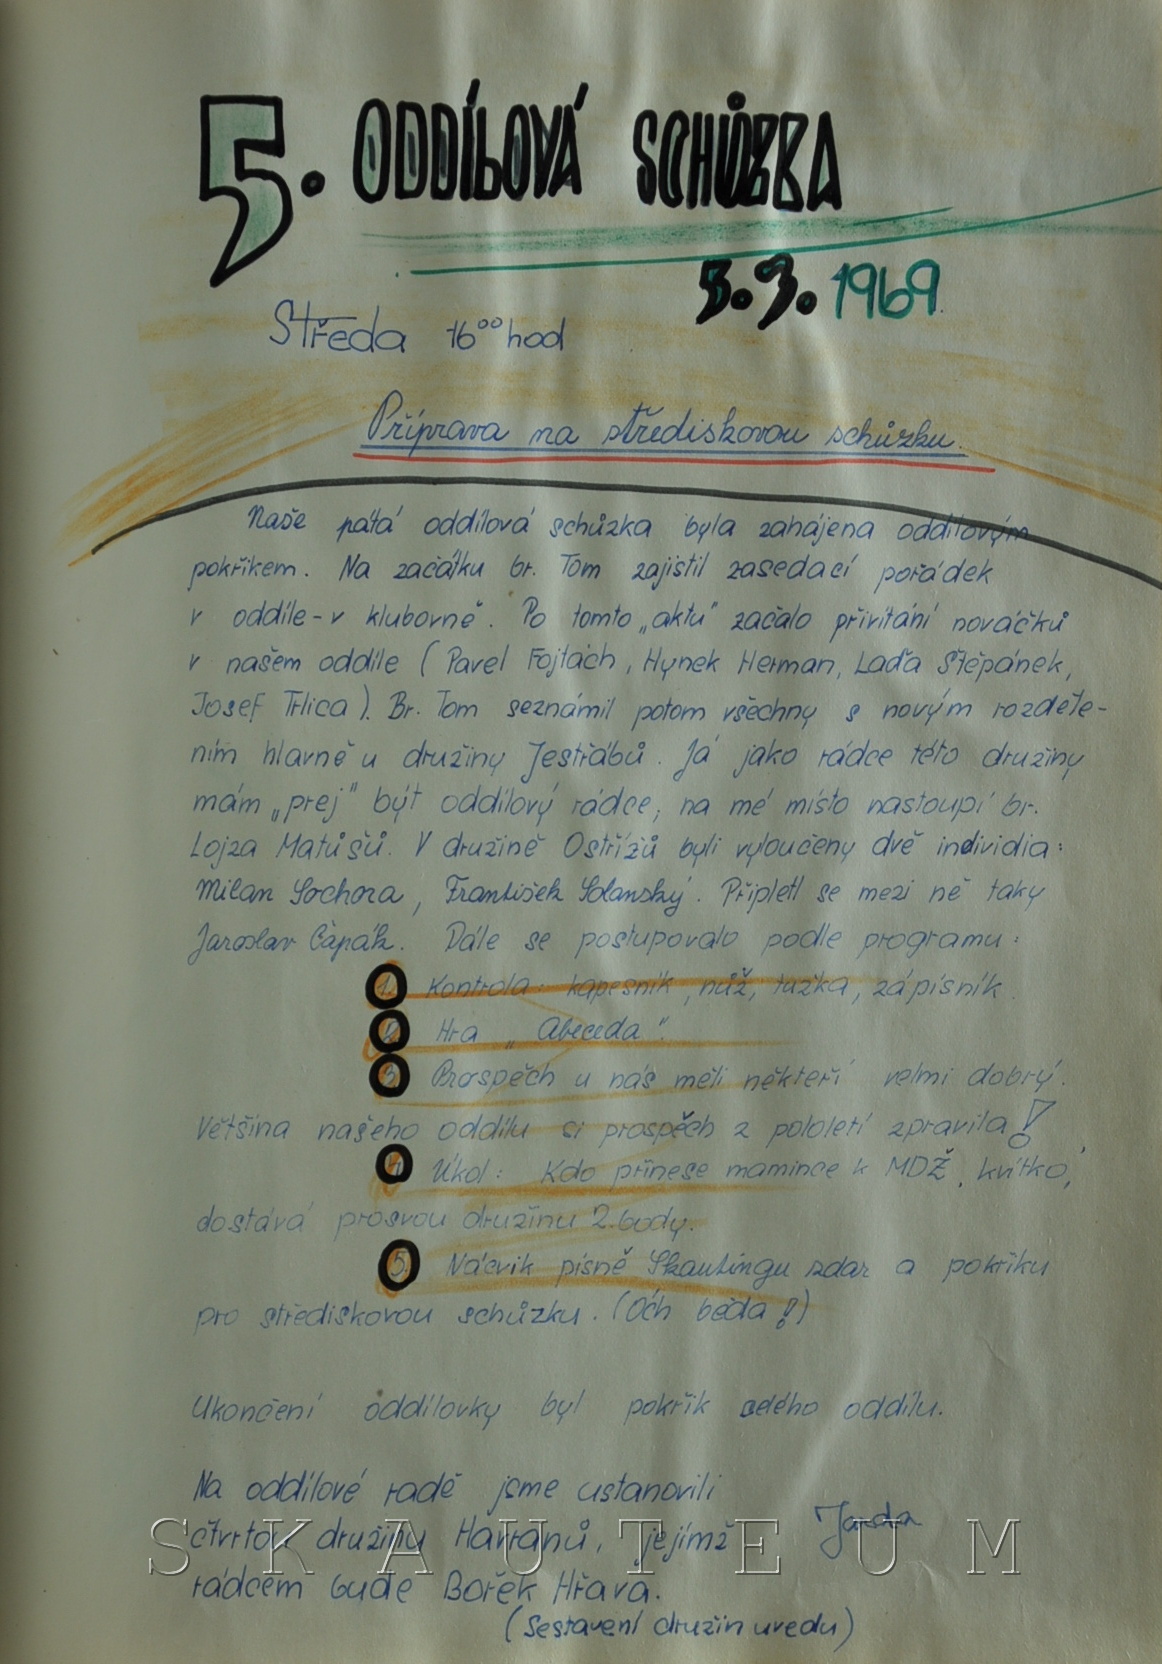 5. ODDÍLOVÁ SCHŮZKA
5.3.1969
Středa 16⁰⁰ hod
Příprava na střediskovou schůzku.
Naše pátá oddílová schůzka byla zahájena oddílovým
pokřikem. Na začátku br. Tom zajistil zasedací pořádek
v oddíle - v klubovně. Po tomto „aktu" začalo přivítání nováčků
v našem oddíle (Pavel Fojtách, Hynek Herman, Laďa Štěpánek,
Josef Trlica). Br. Tom seznámil potom všechny s novým rozděle-
ním hlavně u družiny Jestřábů. Já jako rádce této družiny
mám „prej" být oddílový rádce, na mé místo nastoupí br.
Lojza Matůšů. V družině Ostřížů byli vyloučeny dvě individia:
Milan Sochora, František Solanský. Připletl se mezi ně taky
Jaroslav Čápák. Dále se postupovalo podle programu:
1. Kontrola: kapesník, nůž, tužka, zápisník.
2. Hra „Abeceda".
3. Prospěch u nás měli někteří velmi dobrý.
Většina našeho oddílu si prospěch z pololetí zpravila!
4. Úkol: Kdo přinese mamince k MDŽ, kvítko,
dostává prosvou družinu 2.body.
5. Nácvik písně Skautingu zdar a pokřiku
pro střediskovou schůzku. (Och běda!)
Ukončení oddílovky byl pokřik celého oddílu.
Na oddílové radě jsme ustanovili
čtvrtou družinu Havranů, jejímž
Jarda
rádcem bude Bořek Hřava.
(Sestavení družin uvedu)
SKAUTEUM